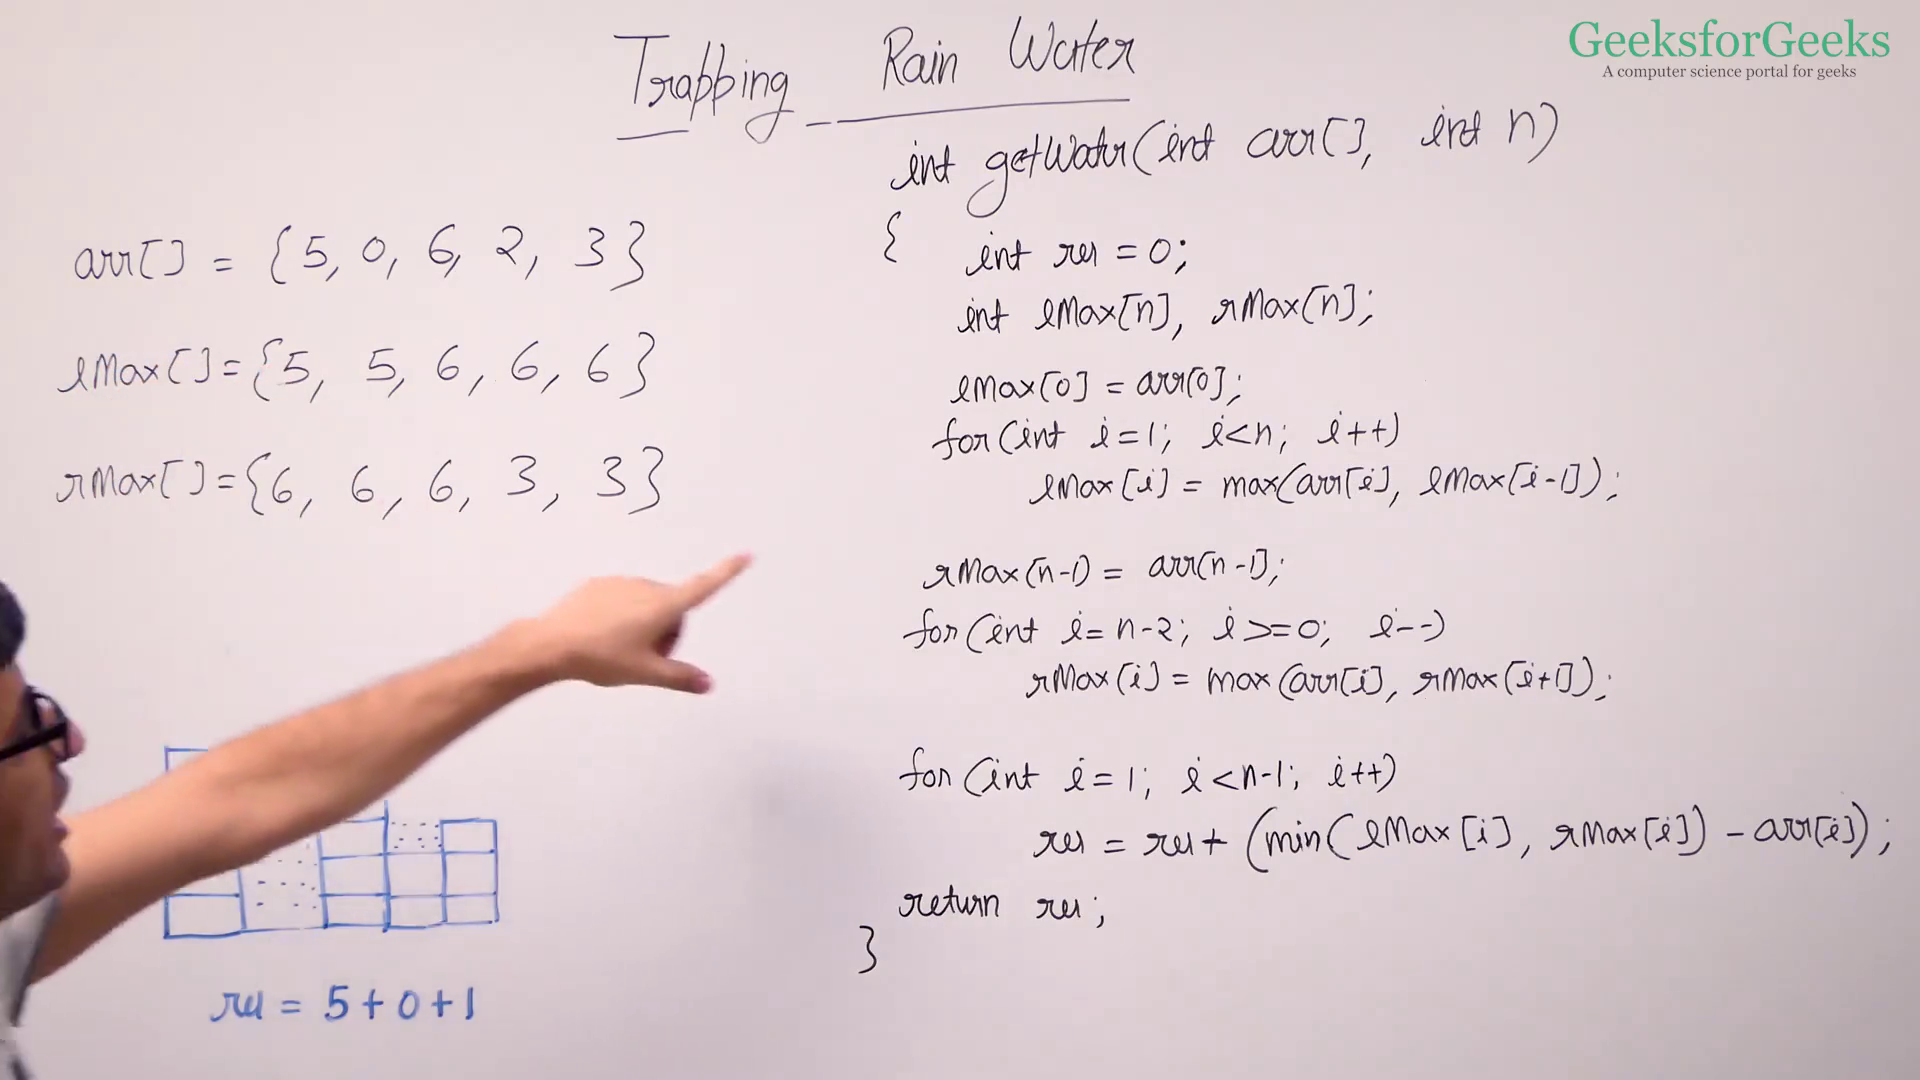 GeeksforGeeks
A computer science portal for geeks
Trapping Rain Water
arr[] = {5, 0, 6, 2, 3}
lMax[] = {5, 5, 6, 6, 6}
rMax[] = {6, 6, 6, 3, 3}
res = 5+0+1
int getWater(int arr[], int n)
{ int res = 0;
int lMax[n], rMax[n];
lMax[0] = arr[0];
for(int i=1; i<n; i++)
lMax[i] = max(arr[i], lMax[i-1]);
rMax[n-1] = arr[n-1];
for(int i=n-2; i>=0; i--)
rMax[i] = max(arr[i], rMax[i+1]);
for(int i=1; i<n-1; i++)
res = res+ (min(lMax[i], rMax[i]) - arr[i]);
return res;
}